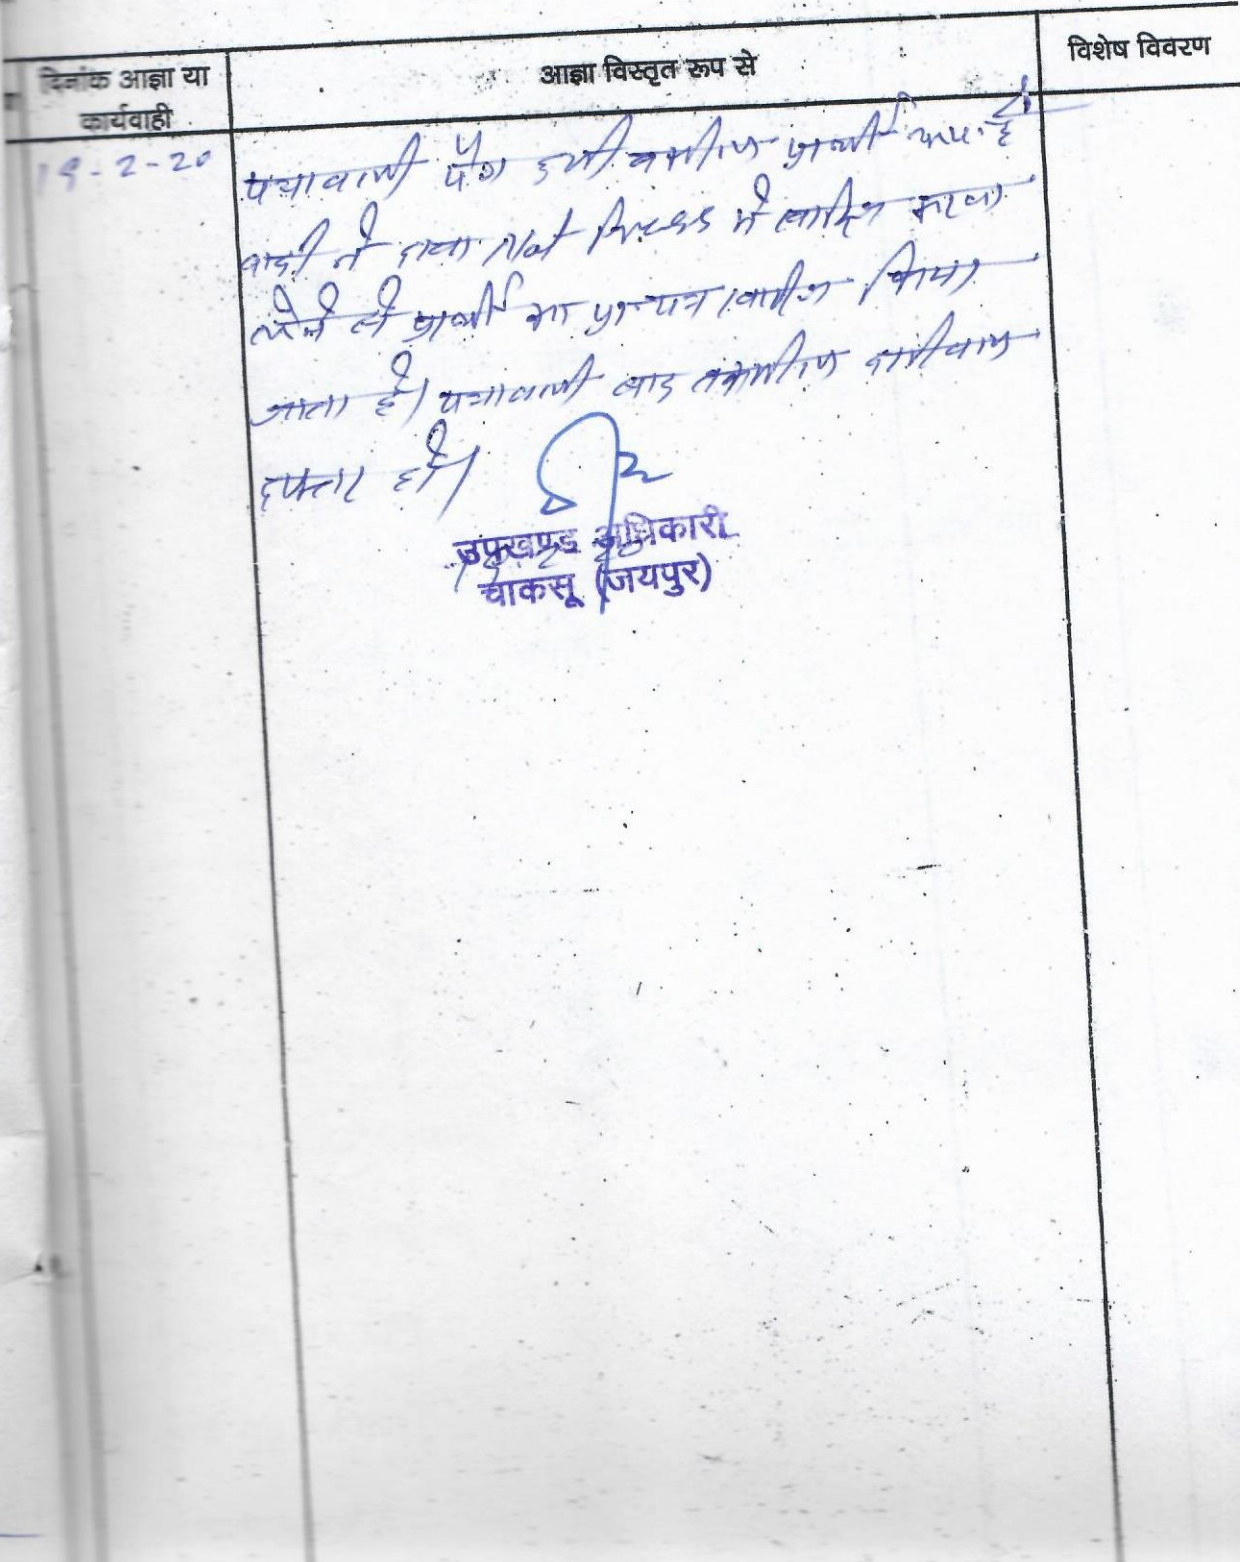 दिनांक आज्ञा या
कार्यवाही
आज्ञा विस्तृत रूप से
विशेष विवरण
19-2-20
पत्रावली पेश हुयी वकील प्रार्थी उप. है
वादी ने दावा Not Press में खारिज करवा
लेने से प्रार्थी का प्रा-पत्र खारिज किया
जाता है। पत्रावली बाद तकमील दाखील
दफ्तर हो।
उपखण्ड अधिकारी
चाकसू (जयपुर)